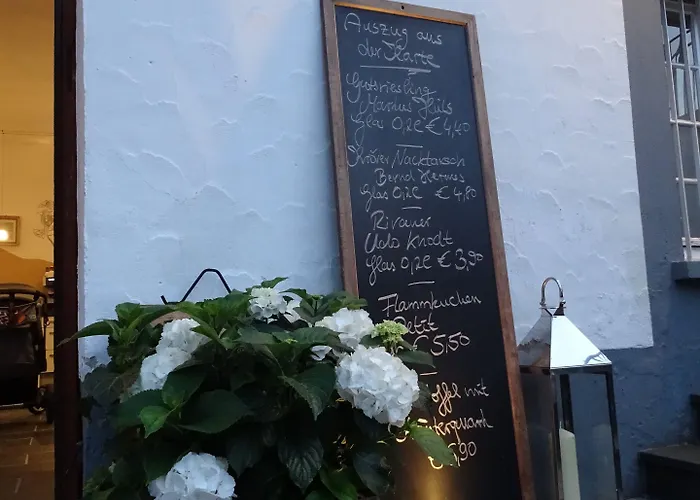 Auszug aus
der Karte
Gutsriesling
Markus Hüls
Glas 0,2l € 4,40
Kröver Nacktarsch
Bernd Hermes
Glas 0,2l € 4,80
Rivaner
Udo Knodt
Glas 0,2l € 3,90
Flammkuchen
Petit
€ 5,50
offel mit
terquark
,90